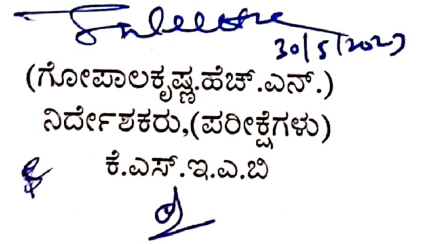 30/5/2023
(ಗೋಪಾಲಕೃಷ್ಣ.ಹೆಚ್.ಎನ್.)
ನಿರ್ದೇಶಕರು,(ಪರೀಕ್ಷೆಗಳು)
ಕೆ.ಎಸ್.ಇ.ಎ.ಬಿ